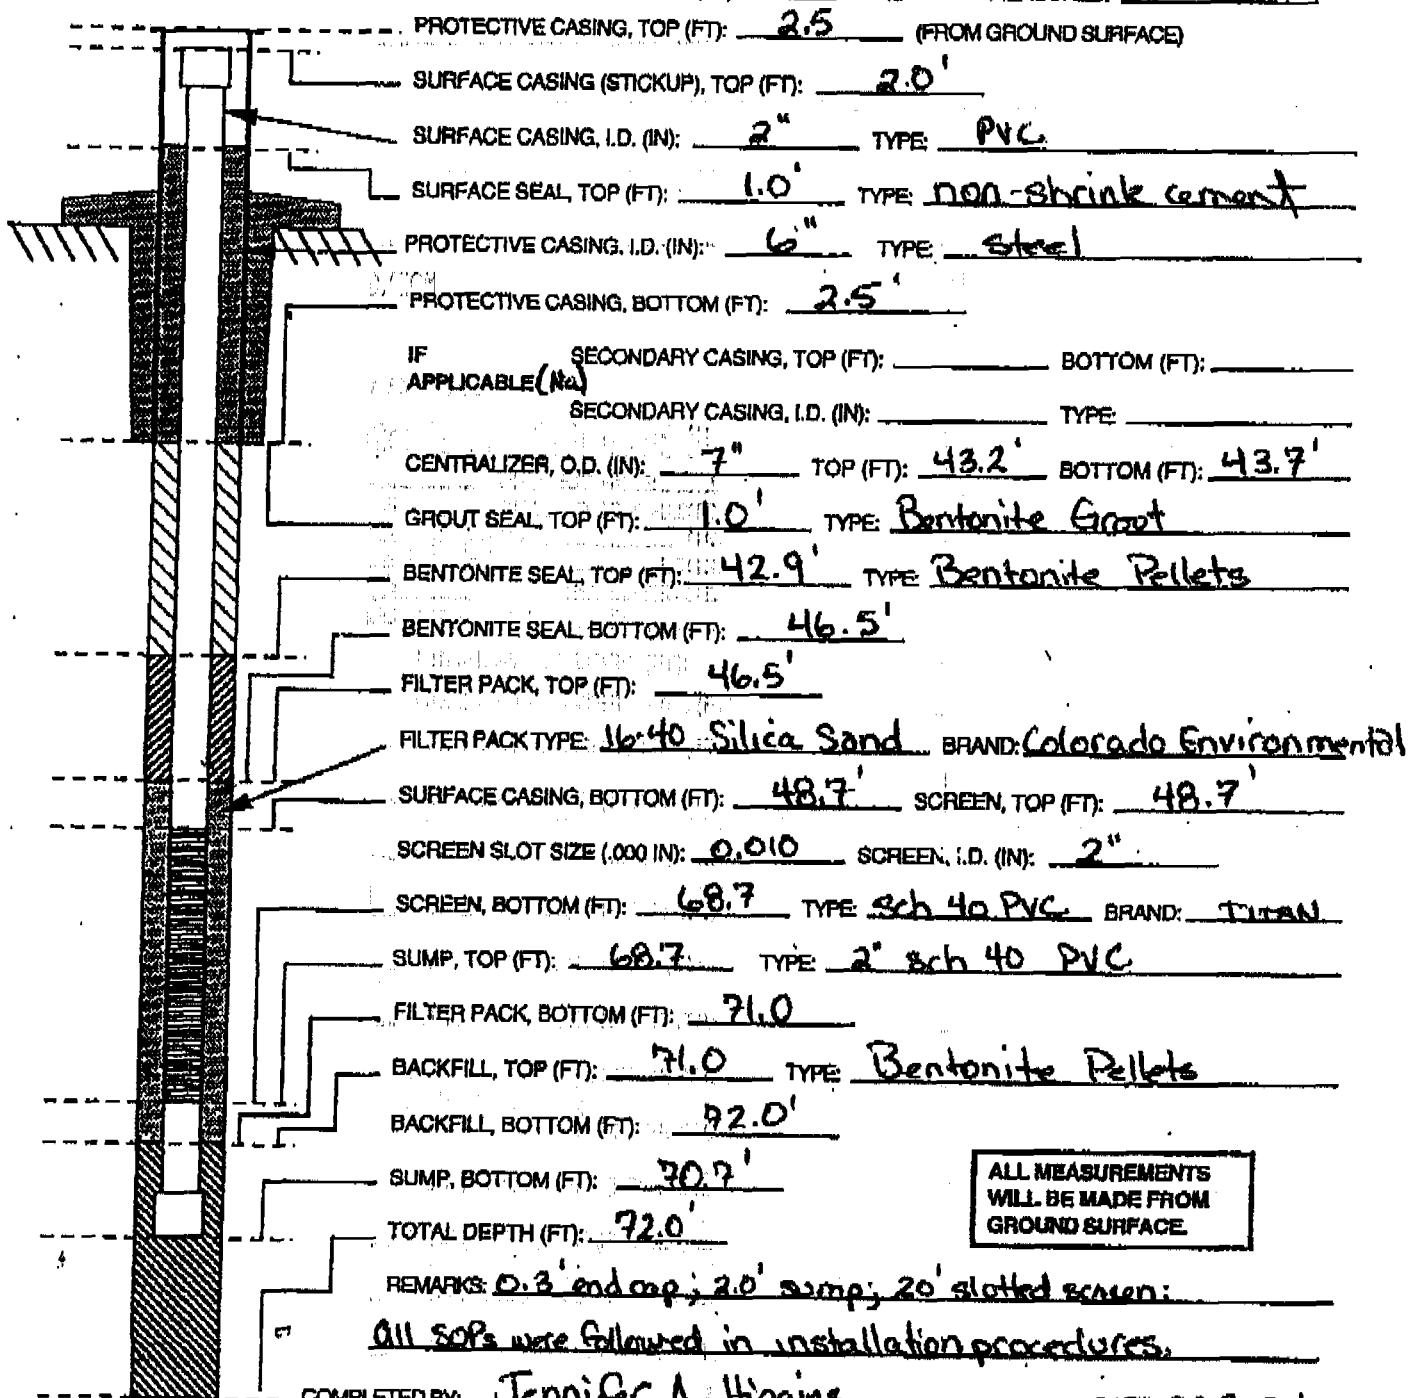 PROTECTIVE CASING, TOP (FT): 2.5 (FROM GROUND SURFACE)
SURFACE CASING (STICKUP), TOP (FT): 2.0'
SURFACE CASING, I.D. (IN): 2" TYPE: PVC
SURFACE SEAL, TOP (FT): 1.0' TYPE: non-shrink cement
PROTECTIVE CASING, I.D. (IN): 6" TYPE: steel
PROTECTIVE CASING, BOTTOM (FT): 2.5'
IF APPLICABLE (Na) SECONDARY CASING, TOP (FT): BOTTOM (FT):
SECONDARY CASING, I.D. (IN): TYPE:
CENTRALIZER, O.D. (IN): 7" TOP (FT): 43.2' BOTTOM (FT): 43.7'
GROUT SEAL, TOP (FT): 1.0' TYPE: Bentonite Grout
BENTONITE SEAL, TOP (FT): 42.9' TYPE: Bentonite Pellets
BENTONITE SEAL, BOTTOM (FT): 46.5'
FILTER PACK, TOP (FT): 46.5'
FILTER PACK TYPE: 16-40 Silica Sand BRAND: Colorado Environmental
SURFACE CASING, BOTTOM (FT): 48.7' SCREEN, TOP (FT): 48.7'
SCREEN SLOT SIZE (.000 IN): 0.010 SCREEN, I.D. (IN): 2"
SCREEN, BOTTOM (FT): 68.7 TYPE: Sch 40 PVC BRAND: TITAN
SUMP, TOP (FT): 68.7 TYPE: 2" sch 40 PVC
FILTER PACK, BOTTOM (FT): 71.0
BACKFILL, TOP (FT): 71.0 TYPE: Bentonite Pellets
BACKFILL, BOTTOM (FT): 72.0'
SUMP, BOTTOM (FT): 70.7'
TOTAL DEPTH (FT): 72.0'
ALL MEASUREMENTS
WILL BE MADE FROM
GROUND SURFACE.
REMARKS: 0.3' end cap; 2.0' sump; 20' slotted screen;
All SOPs were followed in installation procedures.
COMPLETED BY: Jennifer A. Higgins